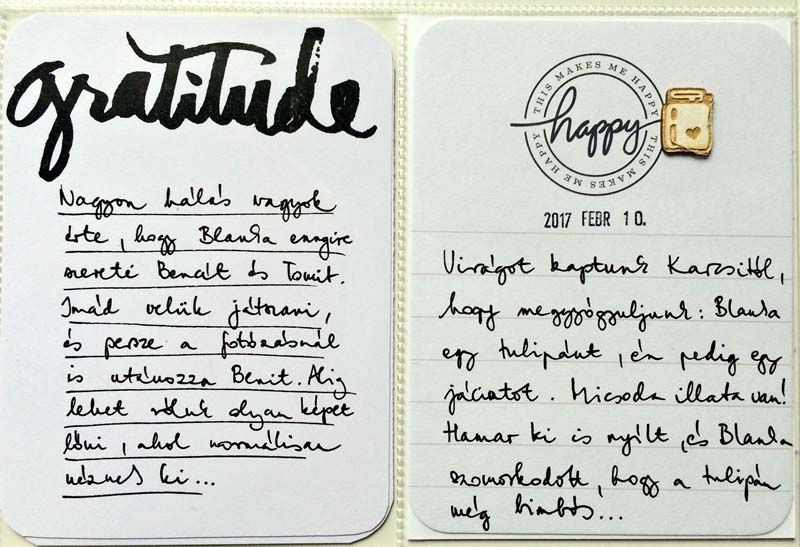 gratitude
Nagyon hálás vagyok
érte, hogy Blanka ennyire
szereti Bencét és Tomit.
Imád velük játszani,
és persze a fotózásnál
is utánozza Benit. Alig
lehet róluk olyan képet
lőni, ahol normálisan
néznek ki...
THIS MAKES ME HAPPY THIS MAKES ME HAPPY
happy
2017 FEBR 10.
Virágot kaptunk Karcsitól,
hogy meggyógyuljunk: Blanka
egy tulipánt, én pedig egy
jácintot. Micsoda illata van!
Hamar ki is nyílt, és Blanka
szomorkodott, hogy a tulipán
még bimbós...